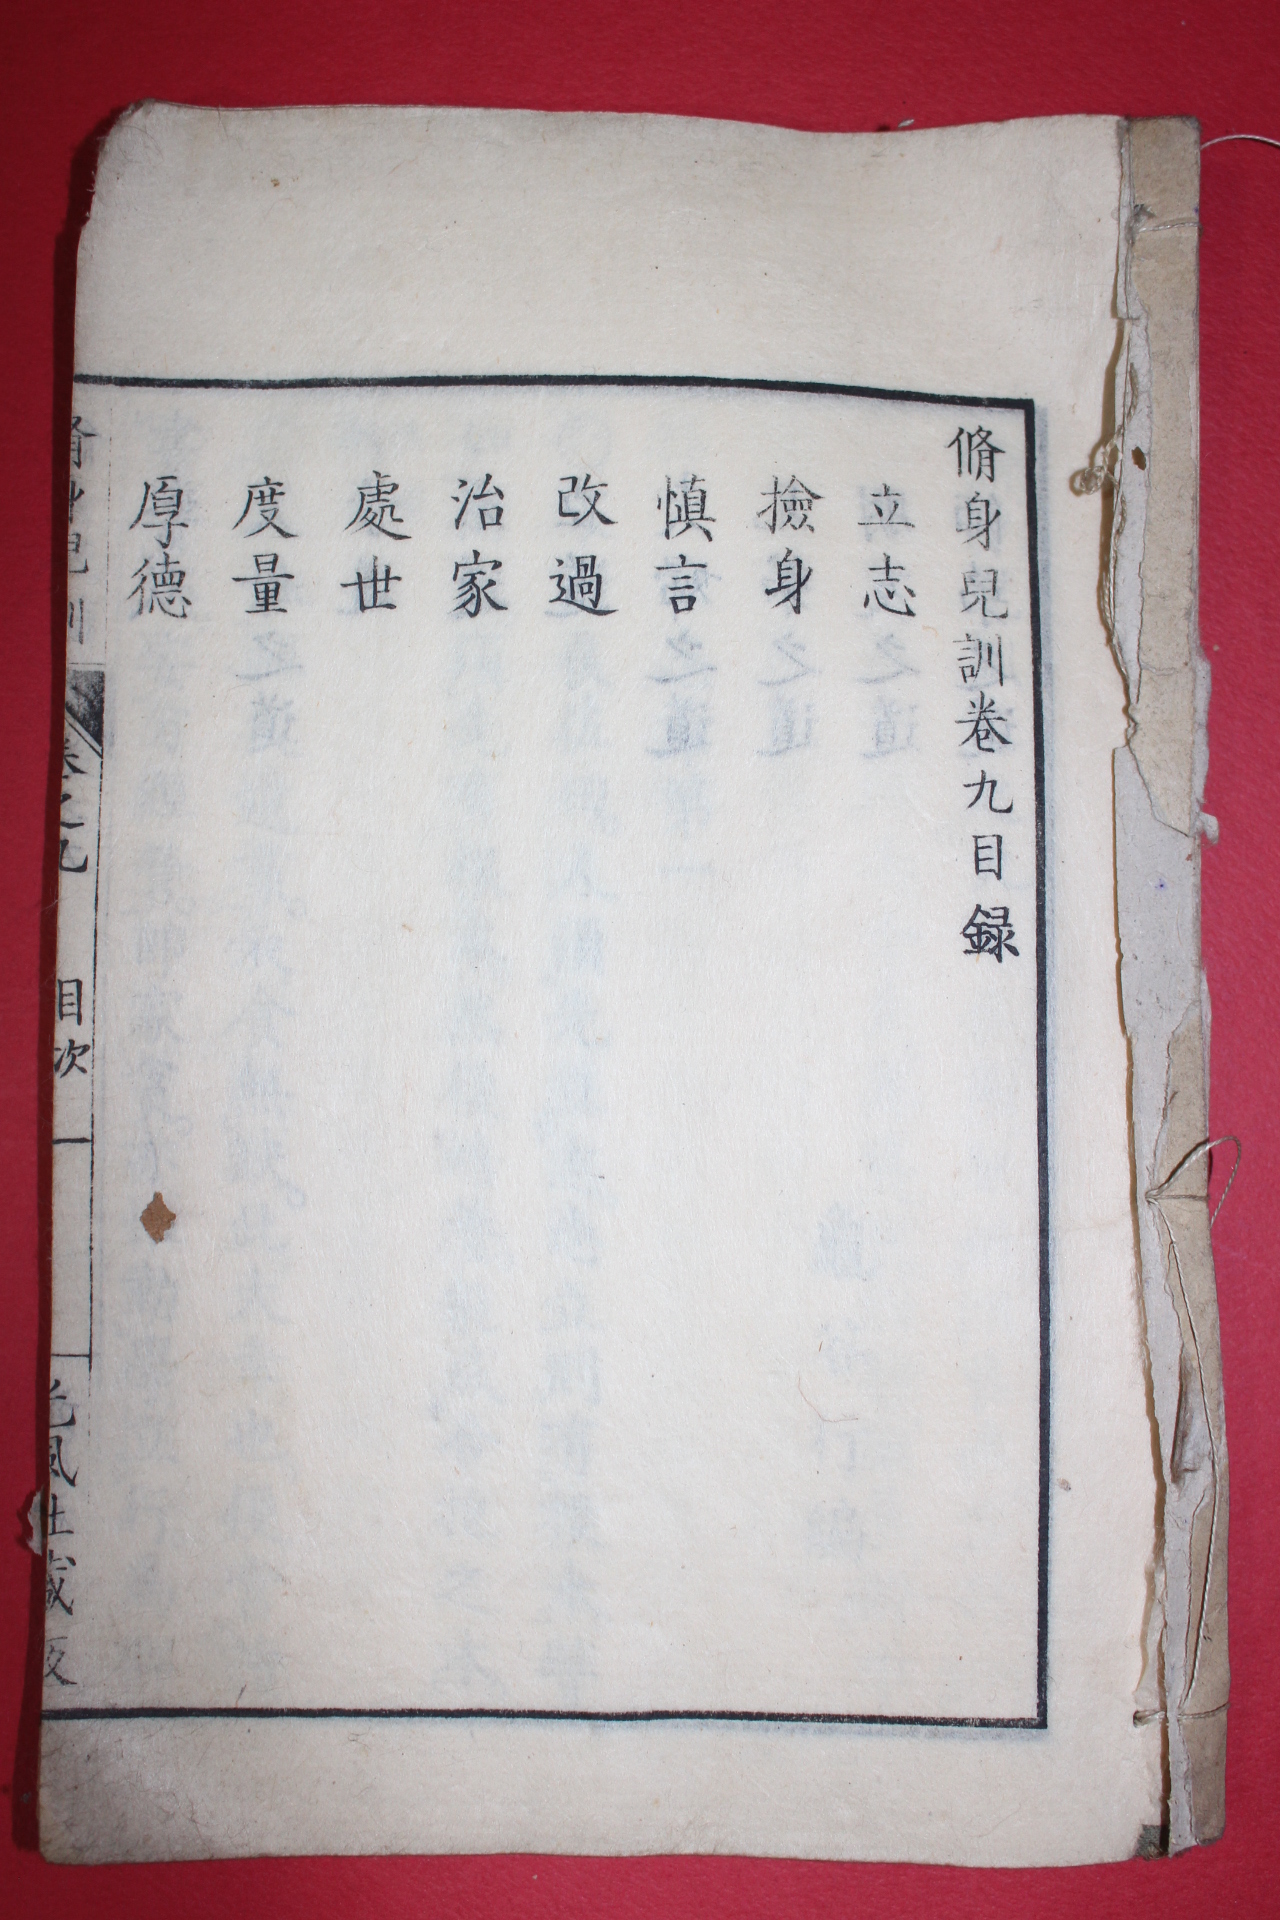 脩身兒訓卷九目錄
立志
撿身
慎言
改過
治家
處世
度量
厚德
脩身兒訓 卷之九 目次 一 光風社藏版